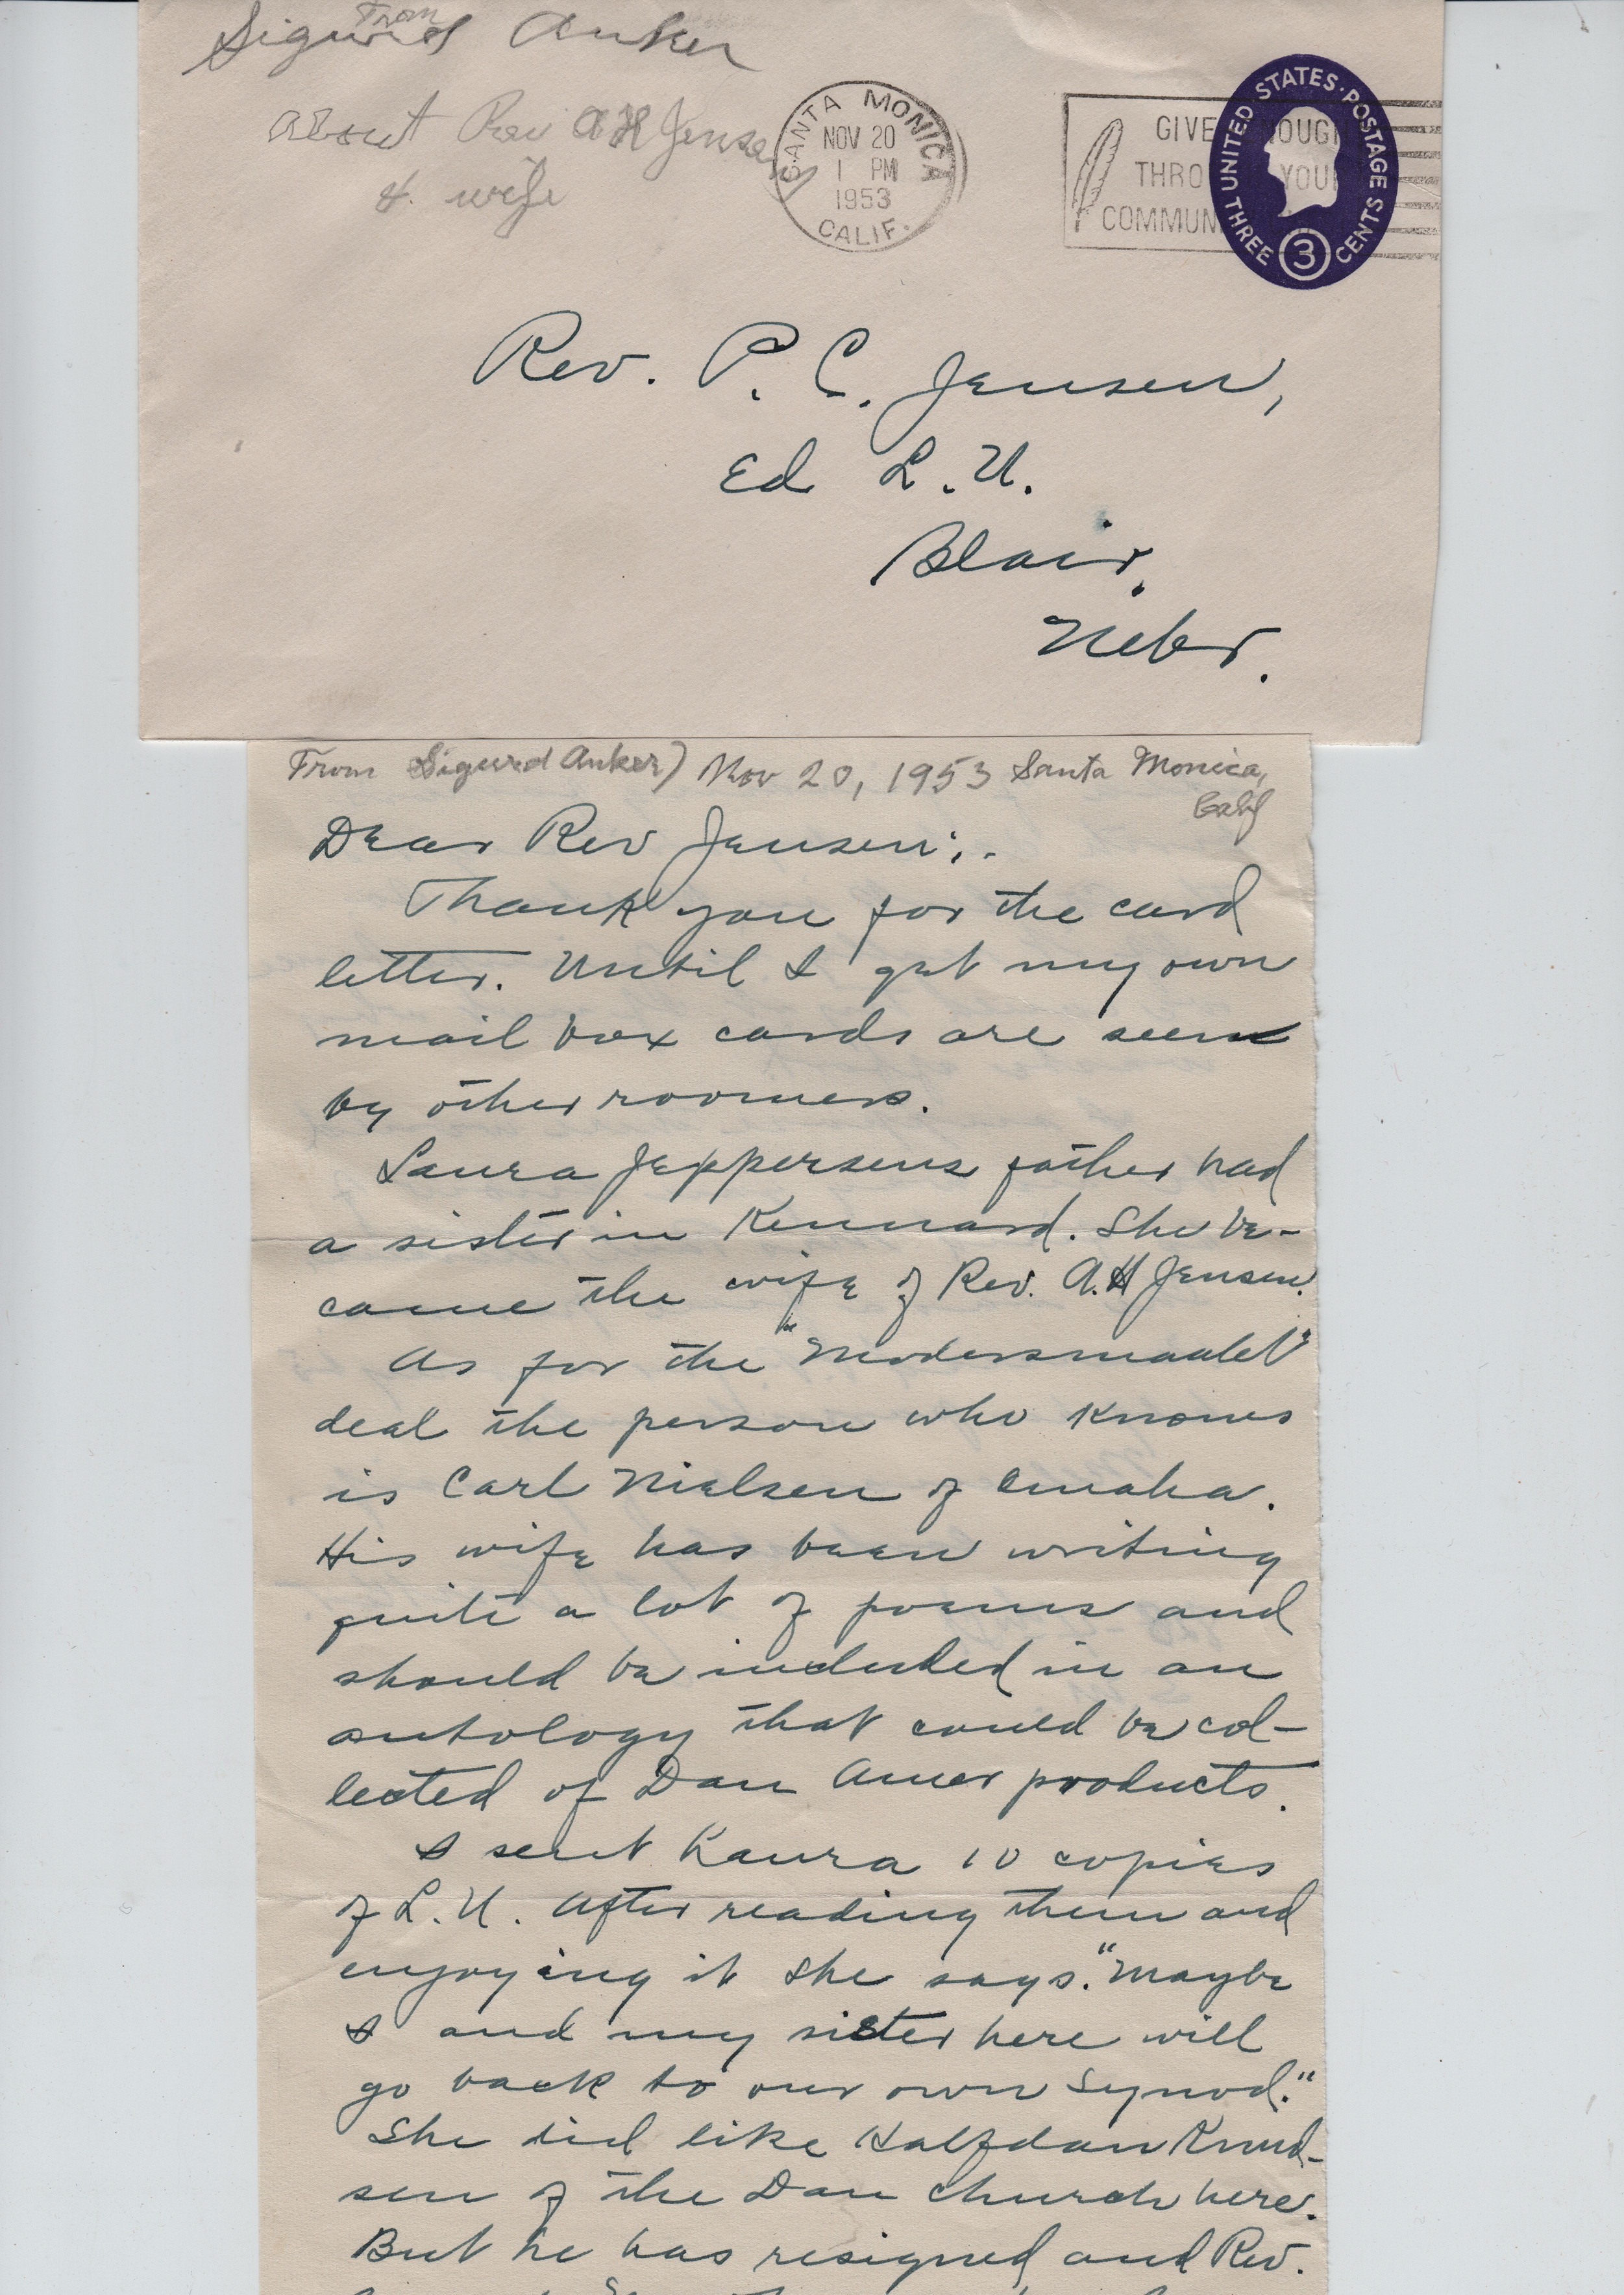 From
Sigurd Anker
About Rev A H Jensen
& wife
SANTA MONICA
NOV 20
1 PM
1953
CALIF.
GIVE
THRO YOU
COMMUN
UNITED STATES · POSTAGE
THREE CENTS
3
Rev. P. C. Jensen,
Ed L. U.
Blair,
Nebr.
From Sigurd Anker) Nov 20, 1953 Santa Monica,
Calif
Dear Rev Jensen:.-
Thank you for the card
letter. Until I get my own
mail box cards are seen
by other roomers.
Laura Jeppersens father had
a sister in Kennard. She be-
came the wife of Rev. A. H Jensen.
As for the "Modersmaalet"
deal the person who knows
is Carl Nielsen of Omaha.
His wife has been writing
quite a lot of poems and
should be included in an
antology that could be col-
lected of Dan Amer products.
I sent Laura 10 copies
of L. U. After reading them and
enjoying it she says. "Maybe
I and my sister here will
go back to our own synod."
She did like Halfdan Knud-
sen of the Dan church here.
But he has resigned and Rev.